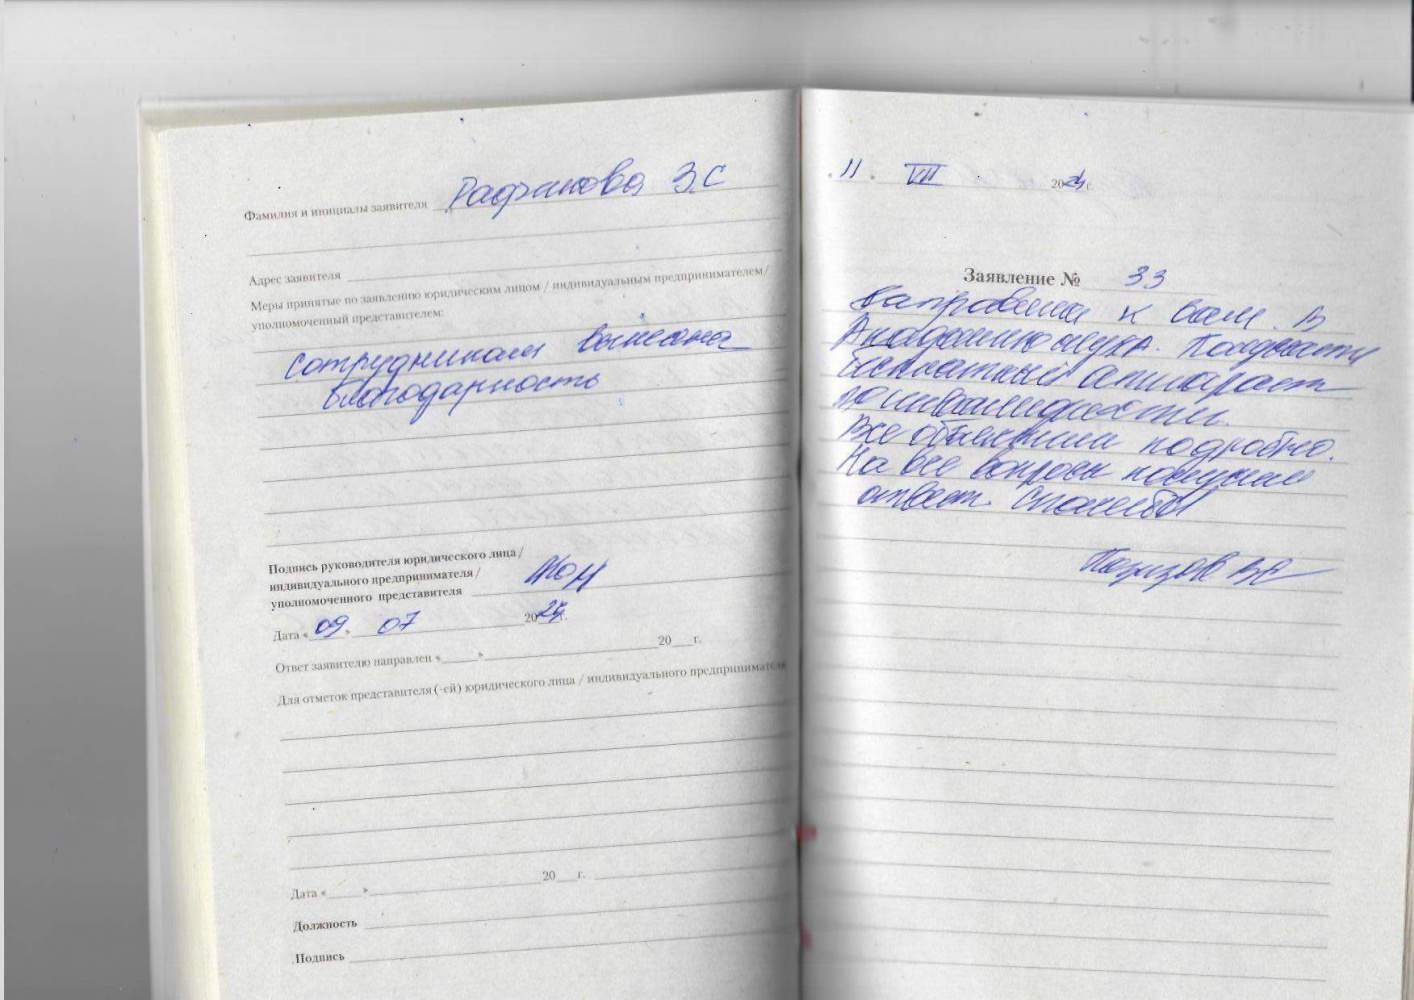 Фамилия и инициалы заявителя З.С
Адрес заявителя
Меры принятые по заявлению юридическим лицом / индивидуальным предпринимателем/
уполномоченный представителем:
сотрудникам вынесена
благодарность
Подпись руководителя юридического лица/
индивидуального предпринимателя /
уполномоченного представителя
Дата « 09 » 07 2024 г.
Ответ заявителю направлен «____»____ 20__ г.
Для отметок представителя (-ей) юридического лица / индивидуального предпринимателя
Дата «____»____ 20__ г.
Должность
Подпись
11 VII 2024 г.
Заявление № 33
направили к вам. В
Академию слуха. Подобрать
бесплатный аппарат
по инвалидности.
Все объяснили подробно.
На все вопросы получили
ответ. Спасибо!